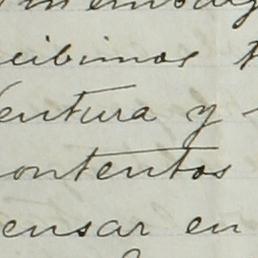 cibimos
entura y
ontentos
ensar en